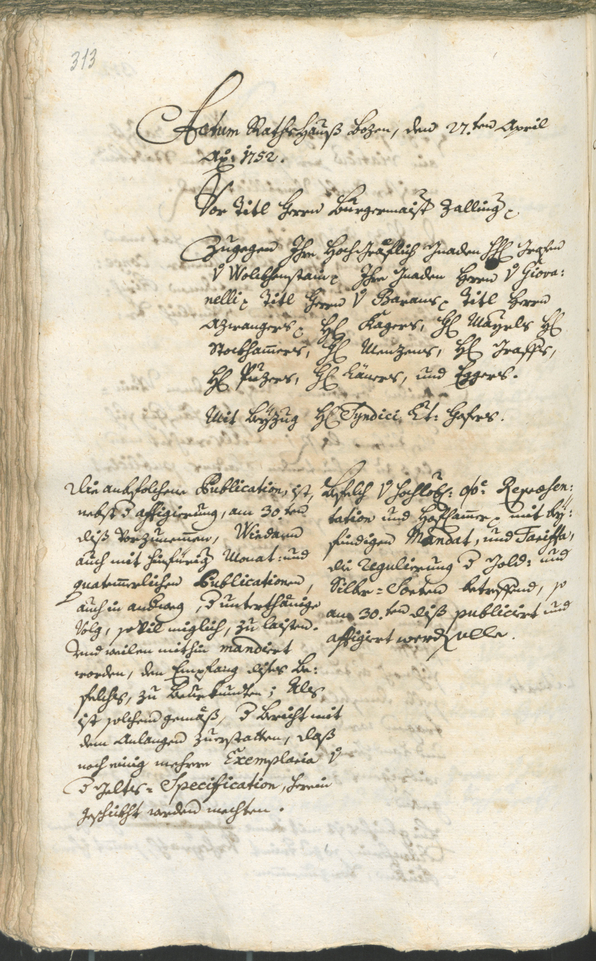 313
Actum Rathshauß Bozen, den 27.ten April
Aõ: 1752.
Vor Titl Herrn Burgermaister Zallinger
Zugegen Ihro Hochgräflich Gnaden HH: Grafen
V Wolckhenstain, Ihro Gnaden Herrn V Giova:
nelli, Titl Herrn V Barans, Titl Herrn
Azwangers, H: Kagers, H: Mayrls H:
Stockhamers, H: Menzens, H: Graffs,
H: Puzers, H: und Eggers.
Mit Beyzug H: Syndici Lt: Hofers.
Die anbefolchene Publication, ist,
nebst d affigierung, am 30.ten
diß vorzunemmen, Wiedann
auch mit hinfürig Monat= und
quatemerlichen Publicationen,
auch in andweg, d unterthänige
Volg, so vil miglich, zu laisten.
Und weilen mithin mandiert
worden, den Empfang dises Be:
felches, zu beurkunden; Als
ist solchem gemäß, d Bericht mit
dem Anlangen zuerstatten, daß
noch einig mehrere Exemplaria V
d Gelts= Specification, herein
geschickht werden mechten.
Befelch V Hochlöb: o:ö: Repraesen:
tation und Hofcammer, mit bey:
findigen Mandat, und Tariffa,
die regulierung d Gold= und
Silber= Sorten betreffend, so
am 30.ten diß publiciert und
affigiert werden solle.